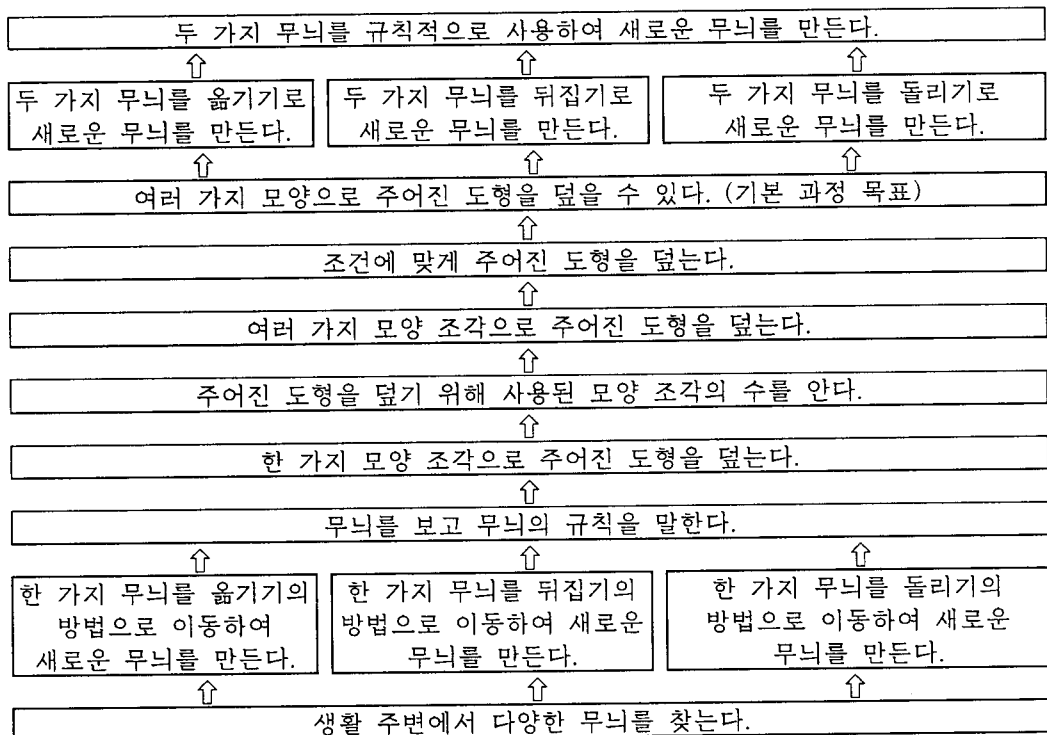 두 가지 무늬를 규칙적으로 사용하여 새로운 무늬를 만든다.
두 가지 무늬를 옮기기로
새로운 무늬를 만든다.
두 가지 무늬를 뒤집기로
새로운 무늬를 만든다.
두 가지 무늬를 돌리기로
새로운 무늬를 만든다.
여러 가지 모양으로 주어진 도형을 덮을 수 있다. (기본 과정 목표)
조건에 맞게 주어진 도형을 덮는다.
여러 가지 모양 조각으로 주어진 도형을 덮는다.
주어진 도형을 덮기 위해 사용된 모양 조각의 수를 안다.
한 가지 모양 조각으로 주어진 도형을 덮는다.
무늬를 보고 무늬의 규칙을 말한다.
한 가지 무늬를 옮기기의
방법으로 이동하여
새로운 무늬를 만든다.
한 가지 무늬를 뒤집기의
방법으로 이동하여 새로운
무늬를 만든다.
한 가지 무늬를 돌리기의
방법으로 이동하여 새로운
무늬를 만든다.
생활 주변에서 다양한 무늬를 찾는다.